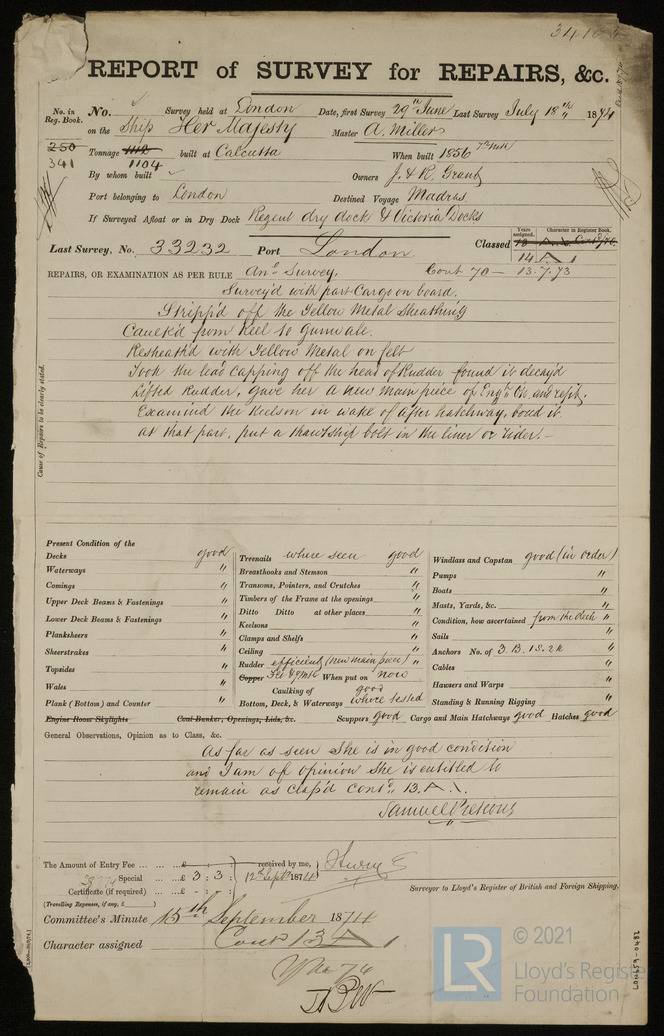 REPORT of SURVEY for REPAIRS, &c.
No. in Reg. Book. No. Survey held at London Date, first Survey 29th June Last Survey July 18th 1874
on the Ship Her Majesty Master A. Millers
250 341 Tonnage 1104 built at Calcutta When built 1856 7th Mth
By whom built Owners J. & R. Grant
Port belonging to London Destined Voyage Madras
If Surveyed Afloat or in Dry Dock Regent dry dock & Victoria Docks
Years assigned. Character in Register Book.
Last Survey, No. 33232 Port London Classed
14 A 1
REPAIRS, OR EXAMINATION AS PER RULE Anl Survey. Cont 70 — 13.7.73
Survey'd with part Cargo on board.
Stripp'd off the Yellow Metal Sheathing
Caulk'd from Keel to Gunwale.
Resheath'd with Yellow Metal on felt
Took the lead Capping off the head of Rudder found it decay'd
Lifted Rudder, gave her a new main piece of Engh Ok. and refit.
Examin'd the Keelson in wake of after hatchway, bored it
at that part, put a thwartship bolt in the liner or rider.—
Cause of Repairs to be clearly stated.
Present Condition of the
Decks good
Waterways "
Comings "
Upper Deck Beams & Fastenings "
Lower Deck Beams & Fastenings "
Planksheers "
Sheerstrakes "
Topsides "
Wales "
Plank (Bottom) and Counter "
Engine Room Skylights Coal Bunker, Openings, Lids, &c.
Treenails where seen good
Breasthooks and Stemson "
Transoms, Pointers, and Crutches "
Timbers of the Frame at the openings "
Ditto Ditto at other places "
Keelsons "
Clamps and Shelfs "
Ceiling "
Rudder efficient (new main piece) "
Copper Felt & YM When put on now
Caulking of good
Bottom, Deck, & Waterways where tested
Windlass and Capstan good (in order)
Pumps "
Boats "
Masts, Yards, &c. "
Condition, how ascertained from the deck "
Sails "
Anchors No. of 3.B. 1S. 2K
Cables "
Hawsers and Warps "
Standing & Running Rigging "
Scuppers good Cargo and Main Hatchways good Hatches good
General Observations, Opinion as to Class, &c.
As far as seen She is in good condition
and I am of opinion She is entitled to
remain as Class'd Contd. 13. A. 1.
The Amount of Entry Fee ... ... £ : : received by me,
Special ... ... £ 3 : 3 : 12th Septr 1874
Certificate (if required) ... £ - : - :
(Travelling Expenses, if any, £ )
Surveyor to Lloyd's Register of British and Foreign Shipping.
Committee's Minute 15th September 1874
Character assigned Contd 13 A 1
LON659-0482
LR
© 2021
Lloyd's Register
Foundation